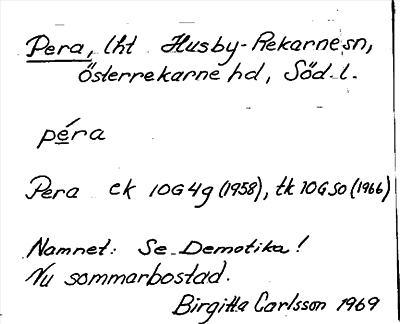 Pera, lht Husby-Rekarne sn,
Österrekarne hd, Söd. l.
péra
Pera ek 10G4g (1958), tk 10GSO (1966)
Namnet: Se Demotika!
Nu sommarbostad.
Birgitta Carlsson 1969